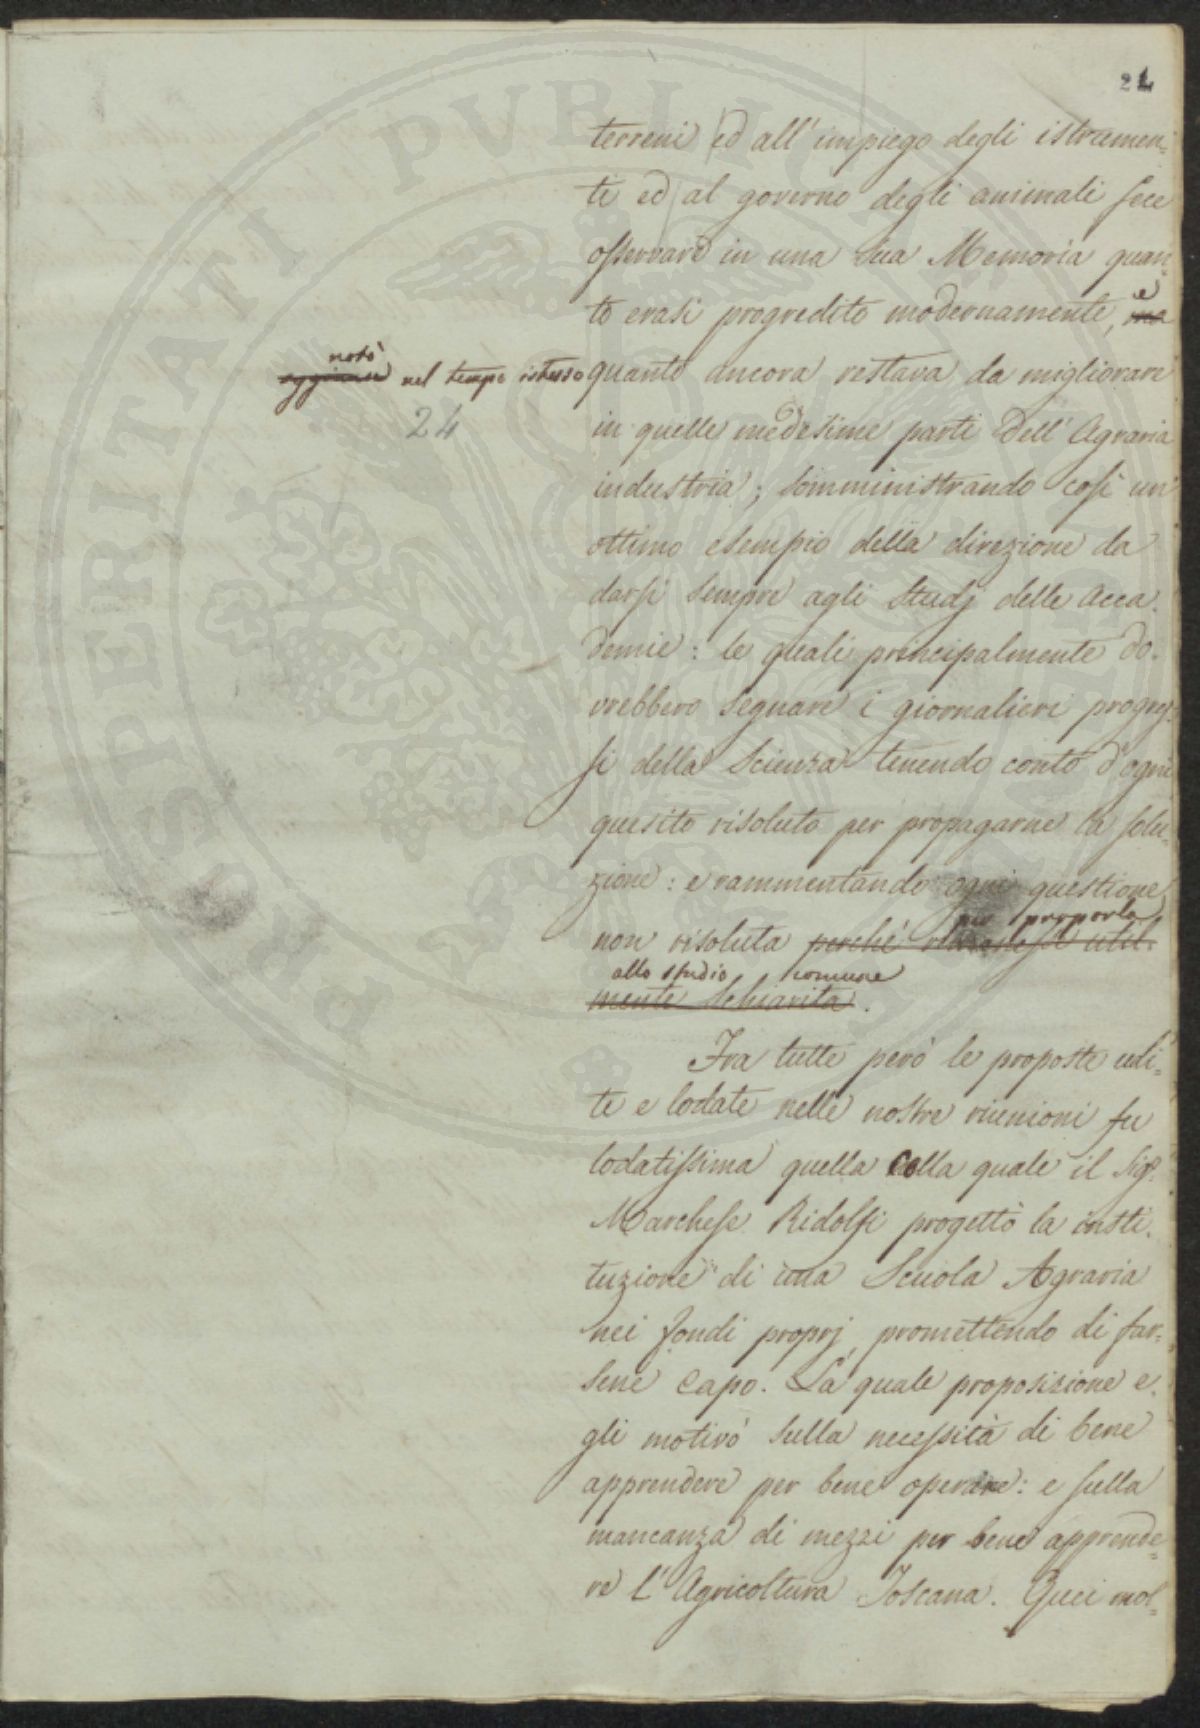 24
terreni ed all'impiego degli istrumen-
ti ed al governo degli animali fece
osservare in una sua Memoria quan-
to erasi progredito modernamente, ~~ma~~ e
~~aggiunse~~ notò nel tempo istesso
24
quanto ancora restava da migliorare
in quelle medesime parti dell'Agraria
industria; somministrando così un'
ottimo esempio della direzione da
darsi sempre agli Studj delle Acca-
demie: le quali principalmente do-
vrebbero segnare i giornalieri progres-
si della Scienza tenendo conto d'ogni
quesito risoluto per propagarne la solu-
zione: e rammentando ogni questione
per proporla
non risoluta ~~perché~~ ~~util-~~
allo studio comune
~~mente schiarita~~.
Fra tutte però le proposte udi-
te e lodate nelle nostre riunioni fu
lodatissima quella colla quale il Sigr.
Marchese Ridolfi progettò la insti-
tuzione di una Scuola Agraria
nei fondi proprj, promettendo di far-
sene Capo. La quale proposizione e-
gli motivò sulla necessità di bene
apprendere per bene operare: e sulla
mancanza di mezzi per bene apprende-
re l'Agricoltura Toscana. Quei mol-
PROSPERITATI PUBLICAE